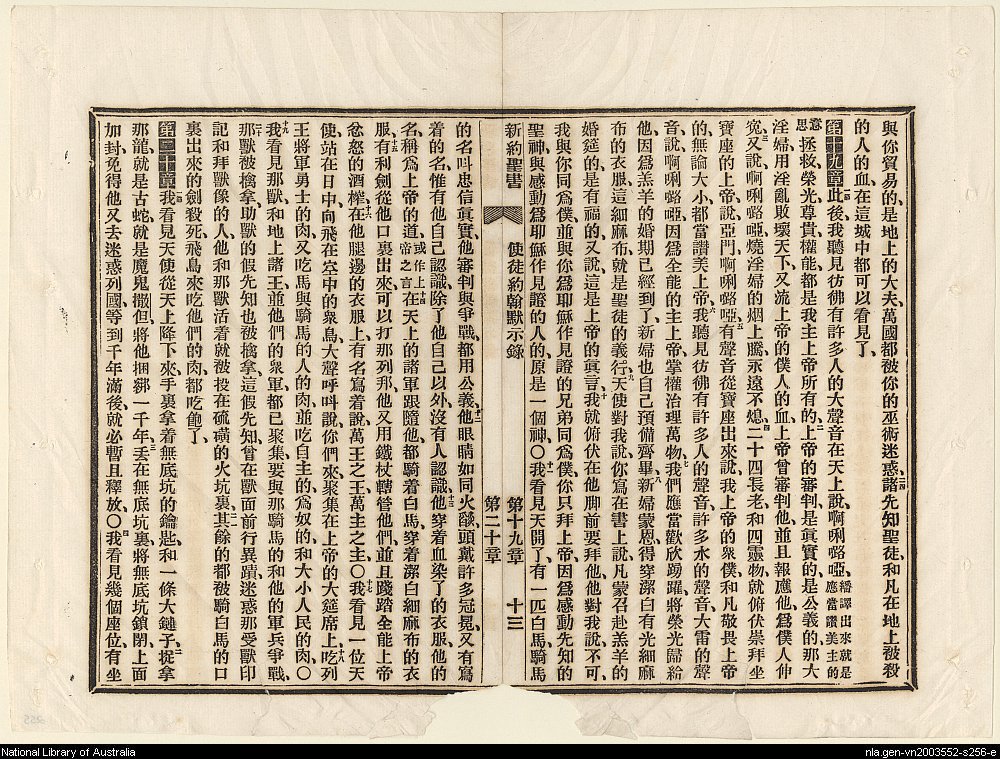 與你貿易的是地上的大夫、萬國都被你的巫術迷惑、諸先知聖徒、和凡在地上被殺
的人的血、在這城中都可以看見了、
第十九章 此後、我聽見彷彿有許多人的大聲音在天上說、啊唎嚕啞、繙譯出來就是應當讚美主的
意思拯救、榮光、尊貴、權能、都是我主上帝所有的、上帝的審判、是真實的、是公義的、那大
淫婦用淫亂敗壞天下、又流上帝的僕人的血、上帝曾審判他、並且報應他、爲僕人伸
寃、又說啊唎嚕啞、燒淫婦的烟上騰、永遠不熄、二十四長老、和四靈物、就俯伏崇拜坐
寶座的上帝、說、亞門、啊唎嚕啞、有聲音從寶座出來說、我上帝的衆僕、和凡敬畏上帝
的、無論大小、都當讚美上帝、我聽見彷彿有許多人的聲音、許多水的聲音、大雷的聲
音、說、啊唎嚕啞、因爲全能的主上帝掌權治理萬物、我們應當歡欣踴躍、將榮光歸給
他、因爲羔羊的婚期已經到了、新婦也自己預備齊畢、新婦蒙恩得穿潔白有光細麻
布的衣服、這細麻布就是聖徒的義行、天使對我說、你寫在書上說、凡蒙召赴羔羊的
婚筵的、是有福的、又說、這是上帝的真言、我就俯伏在他脚前要拜他、他對我說、不可、
我與你同爲僕、並與你爲耶穌作見證的兄弟同爲僕、你只拜上帝、因爲感動先知的
聖神、與感動爲耶穌作見證的人的、原是一個神、○我看見天開了、有一匹白馬、騎馬
新約聖書 使徒約翰默示錄 第十九章 第二十章 十三
的名叫忠信真實、他審判與爭戰、都用公義、他眼睛如同火燄、頭戴許多冠冕、又有寫
着的名、惟有他自己認識、除了他自己以外、沒有人認識、他穿着血染了的衣服、他的
名稱爲上帝的道、或作上帝之言在天上的諸軍跟隨他、都騎着白馬、穿着潔白細麻布的衣
服、有利劍從他口裏出來、可以打那列邦、他又用鐵杖轄管他們、並且踐踏全能上帝
忿怒的酒榨、在他腿邊的衣服上、有名寫着說、萬王之王、萬主之主、○我看見一位天
使、站在日中、向飛在空中的衆鳥、大聲呼叫說、你們來聚集在上帝的大筵席上、吃列
王將軍勇士的肉、又吃馬與騎馬的人的肉、並吃自主的、爲奴的、和大小人民的肉、○
我看見那獸和地上諸王、並他們的衆軍、都已聚集、要與那騎馬的和他的軍兵爭戰、
那獸被擒拿、助獸的假先知也被擒拿、這假先知曾在獸面前行異蹟、迷惑那受獸印
記和拜獸像的人、他和那獸活着就被投在硫磺的火坑裏、其餘的都被騎白馬的口
裏出來的劍殺死、飛鳥來吃他們的肉、都吃飽了、
第二十章 我看見天使從天上降下來、手裏拿着無底坑的鑰匙、和一條大鏈子、捉拿
那龍、就是古蛇、就是魔鬼、撒但、將他捆綁一千年、丟在無底坑裏、將無底坑鎖閉、上面
加封、免得他又去迷惑列國、等到千年滿後、就必暫且釋放、○我看見幾個座位、有坐
National Library of Australia
nla.gen-vn2003552-s256-e